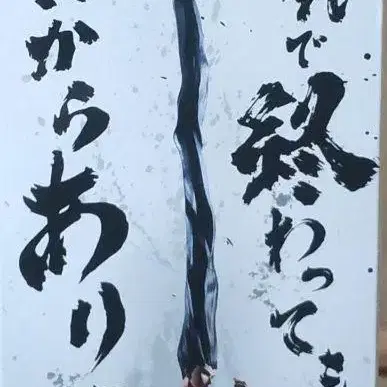 れで終わっても
からあり